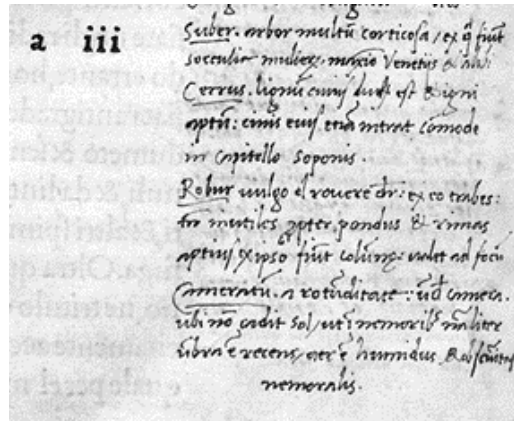 a iii
Suber. arbor multũ corticosa, ex q̃ fiũt
socculi mulieꝝ. maxĩo Venetiis & alibi
Cerrus. lignũ durũ est & igni
aptũ: cinis eius etiã intrat cõmode
in capitello saponis.
Robur vulgo el rovere dr̃: ex eo trabes:
tñ inutiles ꝓpter pondus & rimas
ex ipso fiũt colũnę: valet ad focũ
Cameratũ. a rotũditate: ut camera.
ubi nõ cadit Sol, ut ĩ nemorib⁹ nãliter
ũbra ẽ recens, aer ẽ humidus &
nemoralis.